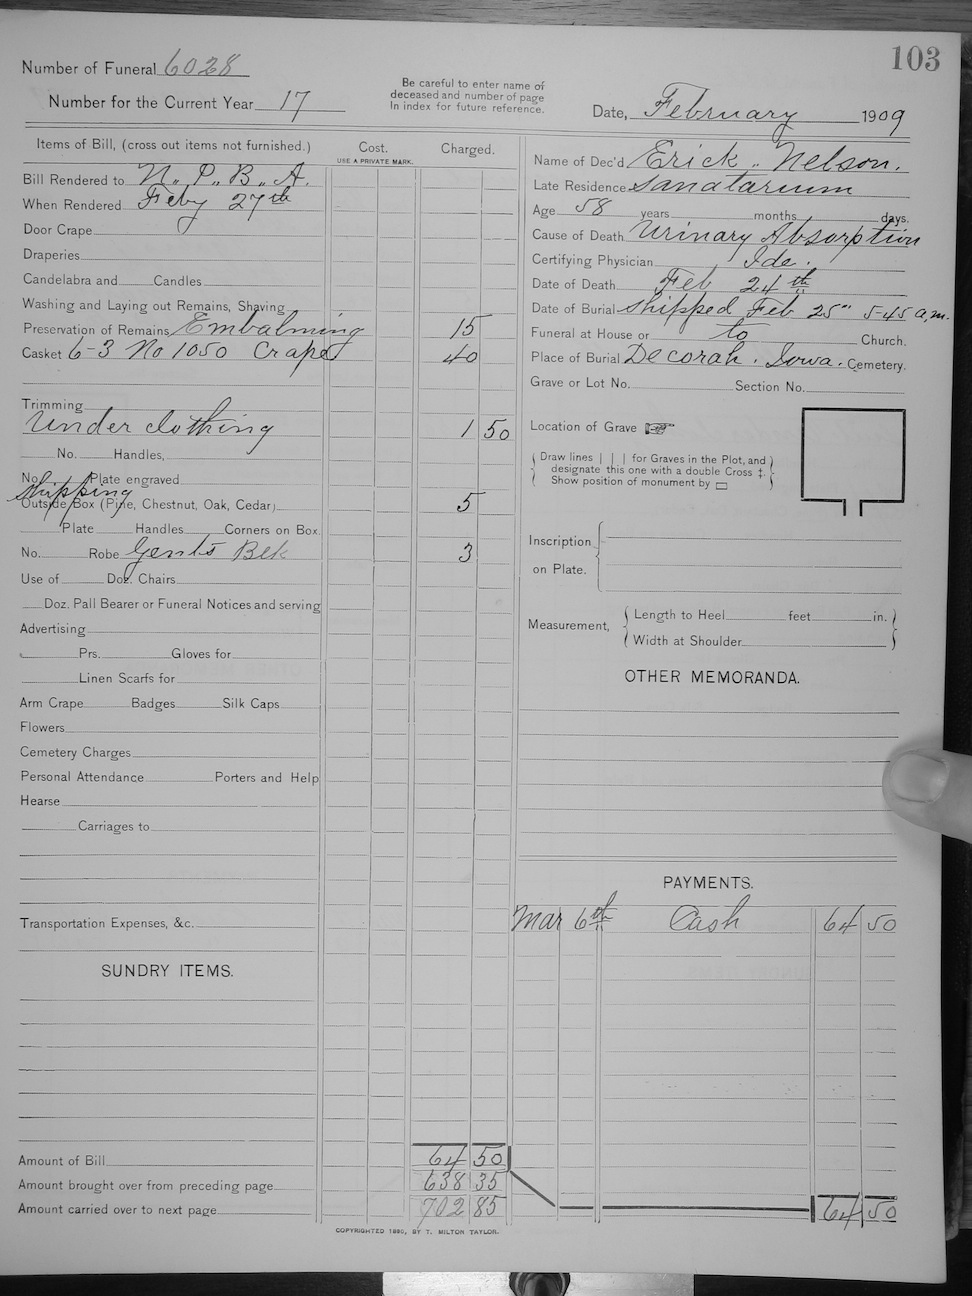 103
Number of Funeral 6028
Number for the Current Year 17
Be careful to enter name of
deceased and number of page
in index for future reference.
Date, February 1909
Items of Bill, (cross out items not furnished.)
Cost.
USE A PRIVATE MARK.
Charged.
Bill Rendered to N., P., B., A.
When Rendered Feby 27th
Door Crape
Draperies
Candelabra and Candles
Washing and Laying out Remains, Shaving
Preservation of Remains Embalming 15
Casket 6-3 No 1050 Crape 40
Trimming
Under clothing 1 50
No. Handles,
No. Plate engraved
shipping
Outside Box (Pine, Chestnut, Oak, Cedar) 5
Plate Handles Corners on Box.
No. Robe Gents Blk 3
Use of Doz. Chairs
Doz. Pall Bearer or Funeral Notices and serving
Advertising
Prs. Gloves for
Linen Scarfs for
Arm Crape Badges Silk Caps
Flowers
Cemetery Charges
Personal Attendance Porters and Help
Hearse
Carriages to
Transportation Expenses, &c.
SUNDRY ITEMS.
Amount of Bill 64 50
Amount brought over from preceding page 638 35
Amount carried over to next page 702 85
Name of Dec'd Erick.. Nelson.
Late Residence Sanatarium
Age 58 years months days.
Cause of Death Urinary Absorption
Certifying Physician Ide.
Date of Death Feb 24th
Date of Burial shipped Feb 25" 5-45 a.m.
Funeral at House or to Church.
Place of Burial Decorah. Iowa. Cemetery.
Grave or Lot No. Section No.
Location of Grave
Draw lines | | | for Graves in the Plot, and
designate this one with a double Cross ‡.
Show position of monument by ▭
Inscription
on Plate.
Measurement,
Length to Heel feet in.
Width at Shoulder
OTHER MEMORANDA.
PAYMENTS.
Mar 6th Cash 64 50
64 50
COPYRIGHTED 1890, BY T. MILTON TAYLOR.